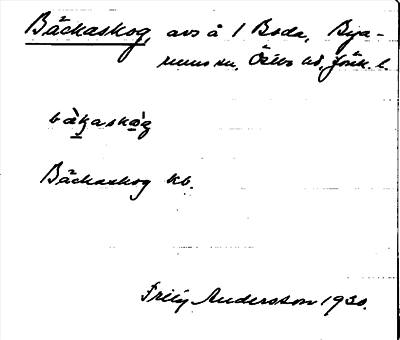 Bäckaskog, avs å 1 Boda, Bya-
rums sn, Östbo hd, Jönk. l.
bàkaskòg
Bäckaskog kb.
Frilq Andersson 1930.